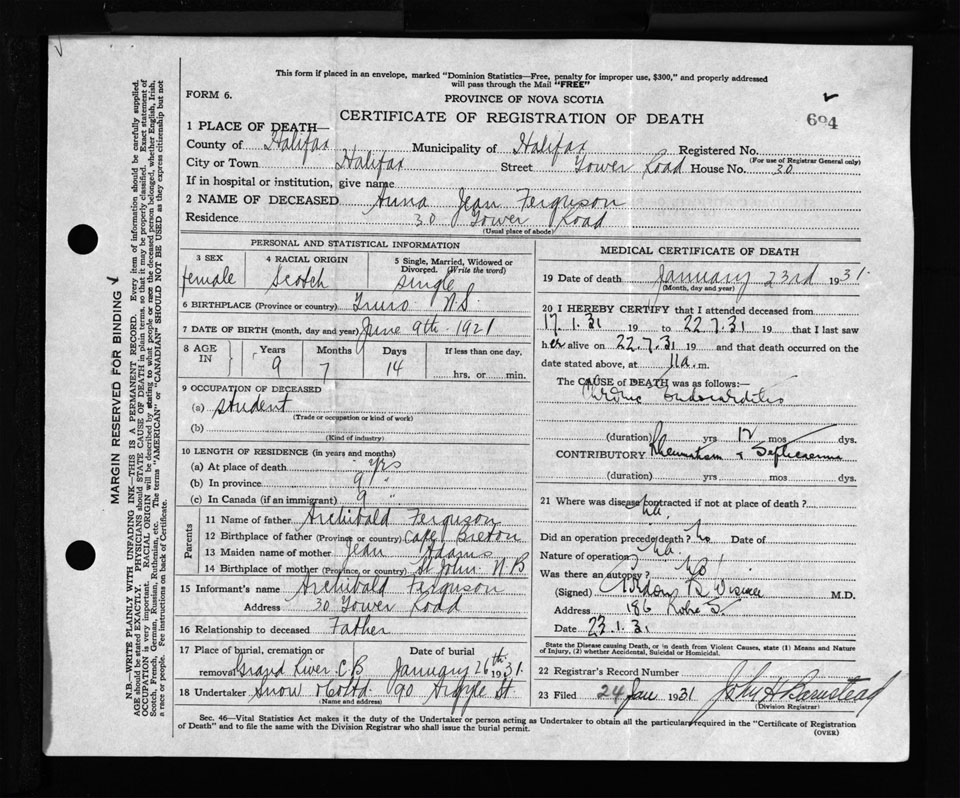 This form if placed in an envelope, marked "Dominion Statistics—Free, penalty for improper use, $300," and properly addressed
will pass through the Mail "FREE"
FORM 6.
PROVINCE OF NOVA SCOTIA
CERTIFICATE OF REGISTRATION OF DEATH
604
1 PLACE OF DEATH—
County of Halifax Municipality of Halifax Registered No.
(For use of Registrar General only)
City or Town Halifax Street Tower Road House No. 30
If in hospital or institution, give name
2 NAME OF DECEASED Anna Jean Ferguson
Residence 30 Tower Road
(Usual place of abode)
PERSONAL AND STATISTICAL INFORMATION
3 SEX 4 RACIAL ORIGIN 5 Single, Married, Widowed or Divorced. (Write the word)
female Scotch single
6 BIRTHPLACE (Province or country) Truro N.S.
7 DATE OF BIRTH (month, day and year) June 9th. 1921
8 AGE IN Years Months Days If less than one day,
9 7 14 hrs. or min.
9 OCCUPATION OF DECEASED
(a) student
(Trade or occupation or kind of work)
(b)
(Kind of industry)
10 LENGTH OF RESIDENCE (in years and months)
(a) At place of death yrs
(b) In province 9 "
(c) In Canada (if an immigrant) 9 "
Parents
11 Name of father Archibald Ferguson
12 Birthplace of father (Province or country) Cape Breton
13 Maiden name of mother Jean Adams
14 Birthplace of mother (Province, or country) St John. N.B
15 Informant's name Archibald Ferguson
Address 30 Tower Road
16 Relationship to deceased Father
17 Place of burial, cremation or removal Grand River C.B
Date of burial January 26th 1931.
18 Undertaker Snow & Co Ltd. 90 Argyle St.
(Name and address)
MEDICAL CERTIFICATE OF DEATH
19 Date of death January 23rd 1931.
(Month, day and year)
20 I HEREBY CERTIFY that I attended deceased from
17.1.31 19 to 22.1.31 19 that I last saw
her alive on 22.1.31 19 and that death occurred on the
date stated above, at 11a.m.
The CAUSE of DEATH was as follows:—
Chronic Endocarditis
(duration) yrs 12 mos dys.
CONTRIBUTORY Rheumatism & Septicaemia
(duration) yrs mos dys.
21 Where was disease contracted if not at place of death?
Did an operation precede death? No Date of
Nature of operation
Was there an autopsy? No
(Signed) Gordon B Wiswell M.D.
Address 186 Robie St
Date 23.1.31
State the Disease causing Death, or in death from Violent Causes, state (1) Means and Nature
of Injury, (2) whether Accidental, Suicidal or Homicidal.
22 Registrar's Record Number
23 Filed 24 Jan 1931 John H Barnstead
(Division Registrar)
Sec. 46—Vital Statistics Act makes it the duty of the Undertaker or person acting as Undertaker to obtain all the particulars required in the "Certificate of Registration
of Death" and to file the same with the Division Registrar who shall issue the burial permit.
(OVER)
MARGIN RESERVED FOR BINDING
N.B.—WRITE PLAINLY WITH UNFADING INK—THIS IS A PERMANENT RECORD. Every item of information should be carefully supplied.
AGE should be stated EXACTLY. PHYSICIANS should STATE CAUSE OF DEATH in plain terms, so that it may be properly classified. Exact statement of
OCCUPATION is very important. RACIAL ORIGIN will be described by stating to what people or race the deceased person belonged, whether English, Irish,
Scotch, French, German, Russian, Ruthenian, etc. The terms "AMERICAN" or "CANADIAN" SHOULD NOT BE USED as they express citizenship but not
a race or people. Fee instructions on back of Certificate.